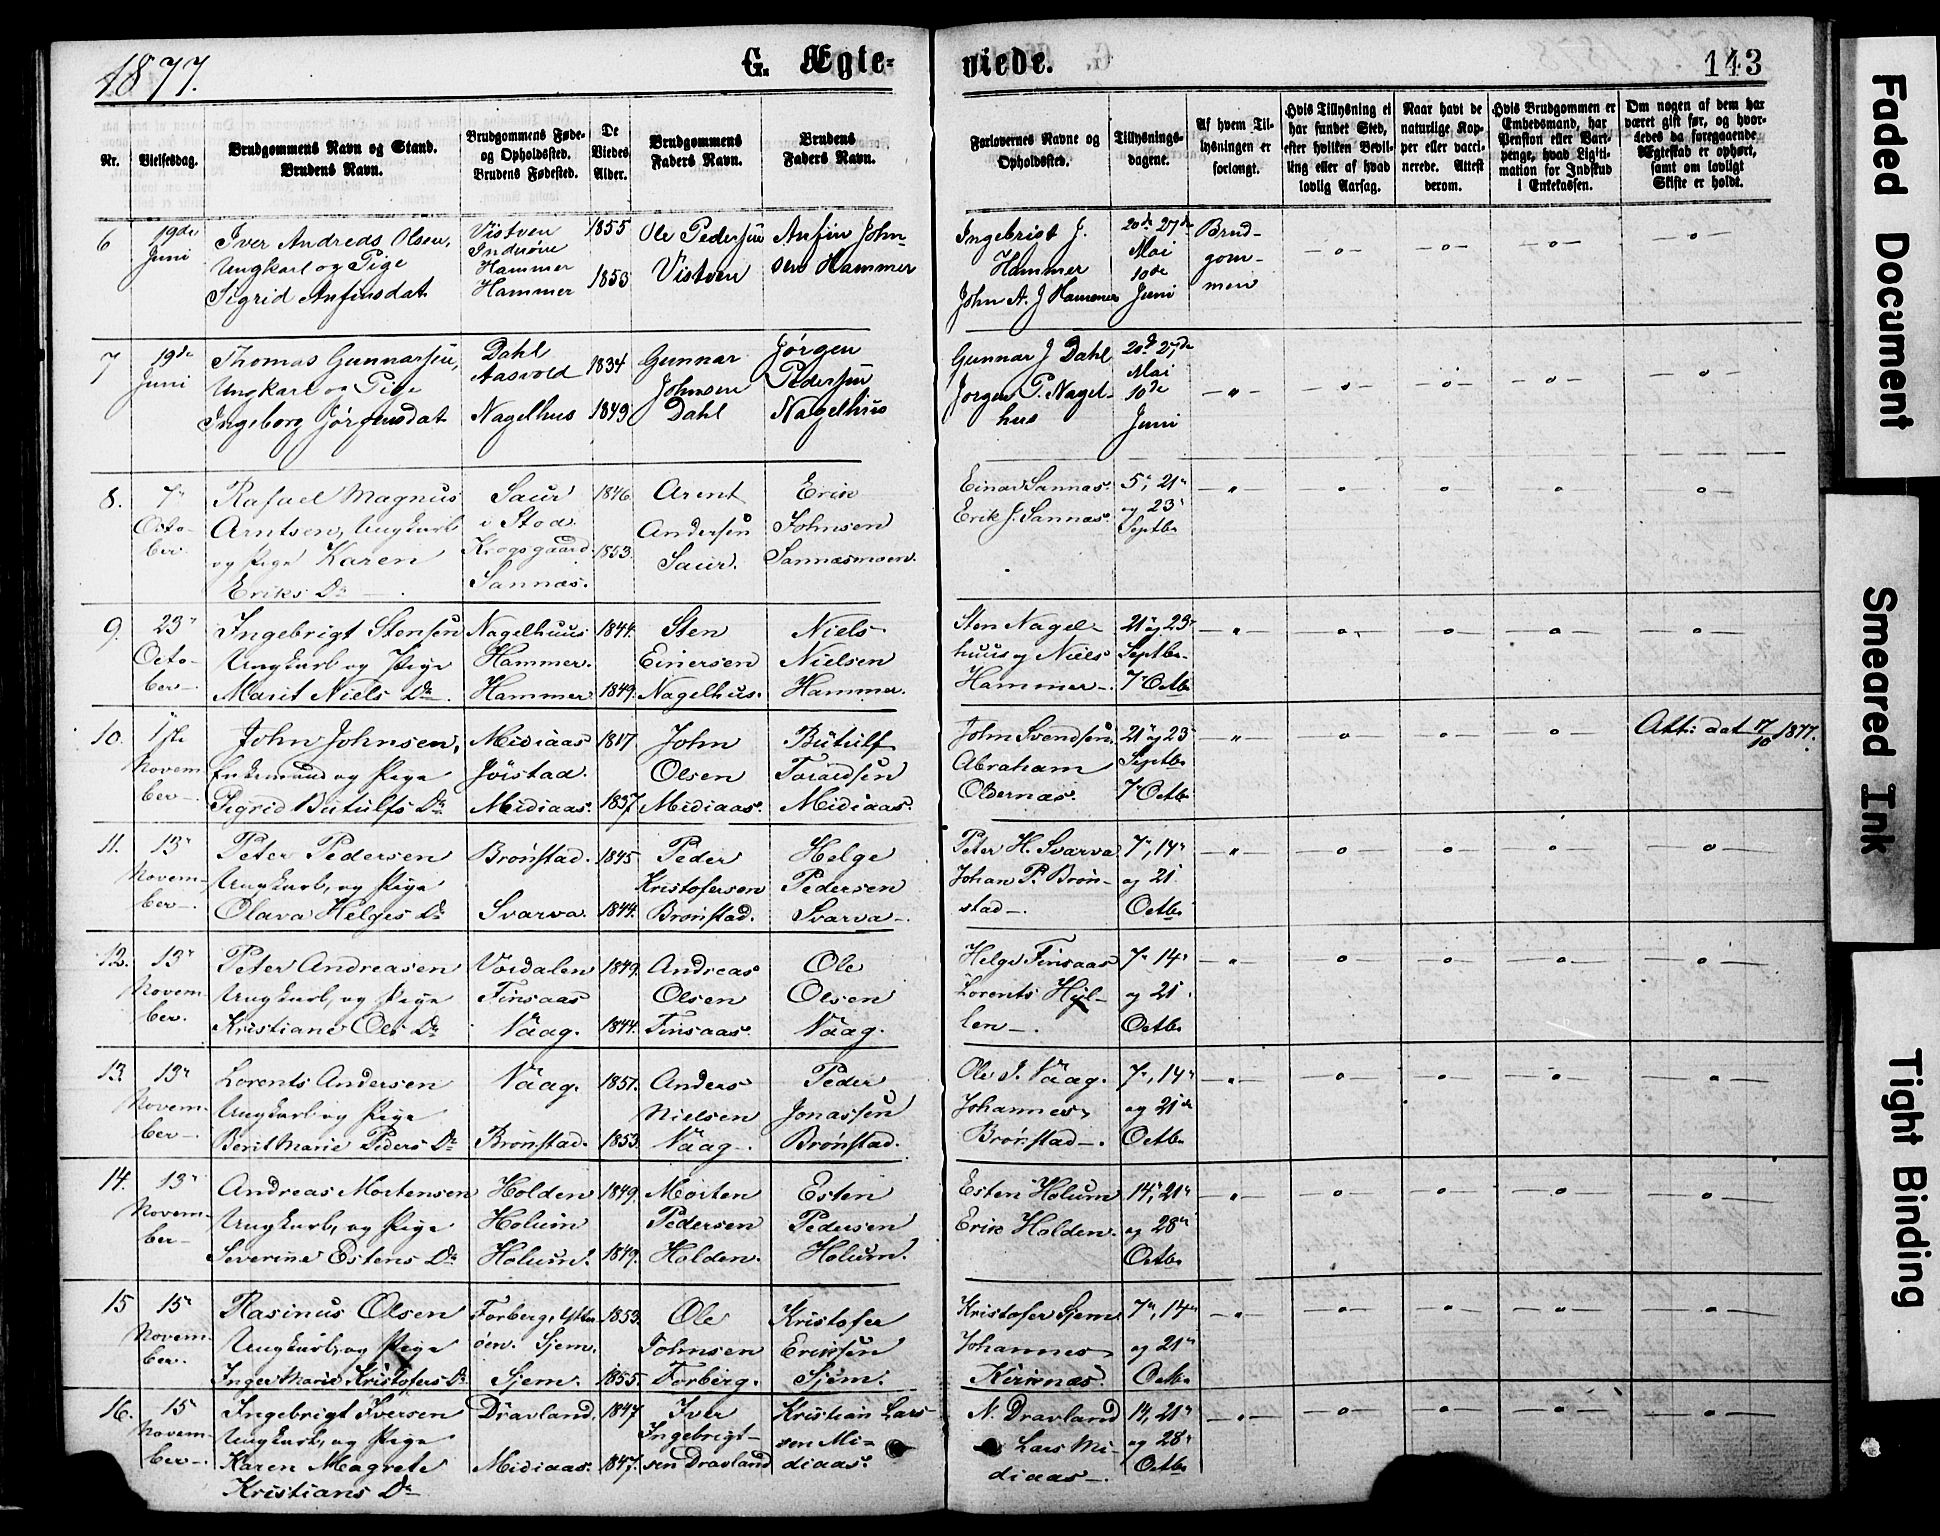 1877.
G. Ægte-
viede.
143
Nr.
Vielsesdag.
Brudgommens Navn og Stand.
Brudens Navn.
Brudgommens Føde-
og Opholdssted.
Brudens Fødested.
De
Viedes
Alder.
Brudgommens
Faders Navn.
Brudens
Faders Navn.
Forlovernes Navne og
Opholdssted.
Tillysnings-
dagene.
Af hvem Til-
lysningen er
forlangt.
Hvis Tillysning ei
har fundet Sted,
efter hvilken Bevil-
ling eller af hvad
lovlig Aarsag.
Naar havt de
naturlige Kop-
per eller vacci-
nerede. Attest
derom.
Hvis Brudgommen er
Embedsmand, har
Pension eller Vart-
penge, hvad Ligiti-
mation for Indskud
i Enkekassen.
Om nogen af dem har
været gift før, og hvor-
ledes da foregaaende
Ægteskab er ophørt,
samt om lovligt
Skifte er holdt.
6
19de
Juni
Iver Andreas Olsen,
Ungkarl og Pige
Sigrid Anfinsdat
Vistven
Inderøen
Hammer
Hammer
1855
1853
Ole Pedersen
Vistven
Anfin John-
sen Hammer
Ingebrigt J.
Hammer
John A. J Hammer
20de 27de
Mai
10de
Juni
Brud-
gom-
men
7
19de
Juni
Thomas Gunnarsen,
Ungkarl og Pige
Ingeborg Jørgensdat
Dahl
Aasvold
Nagelhus
1834
1849
Gunnar
Johnsen
Dahl
Jørgen
Pedersen
Nagelhus
Gunnar J Dahl
Jørgen P. Nagel-
hus
20de 27de
Mai
10de
Juni
8.
7de
Octo-
ber.
Rafael Magnus
Arntsen, Ungkarl
og Pige Karen
Eriks Dr
Saur
i Stod
Krogsgaard
Sannæs.
1846
1853
Arent
Andersen
Saur.
Erik
Johnsen
Sannæsmoen.
Einar Sannæs.
Erik J. Sannæs.
5, 21
og 23
Septbr
9.
23
Octo-
ber
Ingebrigt Stensen
Ungkarl og Pige
Marit Niels Dr
Nagelhuus
Hammer.
Hammer
1844.
1849.
Sten
Einersen
Nagelhus.
Niels
Nielsen
Hammer.
Sten Nagel-
huus og Niels
Hammer
21 og 23
Septbr
7 Octbr
10.
1ste
Novem
ber
John Johnsen,
Enkemand og Pige
Sigrid Butulfs Dr
Midiaas
Jørstad.
Midiaas.
1817
1837
John
Olsen
Midiaas.
Butulf
Toraldsen
Midiaas.
John Svendsen
Abraham
Oldernæs.
21 og 23
Septbr
7 Octbr
Att: dat 17/10 1877.
11.
13
Novem-
ber
Peter Pedersen
Ungkarl, og Pige
Olava Helges Dr
Brønstad.
Svarva
1845
1844.
Peder
Kristofersen
Brønstad.
Helge
Pedersen
Svarva
Peter H. Svarva
Johan P. Brøn-
stad
7, 14
og 21
Octbr
12.
13
Novem-
ber.
Peter Andreasen
Ungkarl, og Pige
Kristiane Ols Dr
Værdalen
Finsaas
Vaag.
1849.
1844.
Andreas
Olsen
Finsaas.
Ole
Olsen
Vaag.
Helge Finsaas
Lorents Hjel-
len
7 14
og 21
Octbr
13.
13
Novem-
ber
Lorents Andersen
Ungkarl og Pige
Berit Marie Peders Dr
Vaag.
Brønstad.
1851.
1853.
Anders
Nielsen
Vaag
Peder
Jonassen
Brønstad.
Ole J. Vaag.
Johannes
Brønstad
7, 14
og 21de
Octbr
14.
13
Novem-
ber
Andreas Mortensen
Ungkarl, og Pige
Severine Estens Dr
Holden
Holum
Holum.
1849.
1849.
Morten
Pedersen
Holden.
Esten
Pedersen
Holum.
Esten Holum
Erik Holden.
14, 21
og 28
Octbr
15
15
Novem-
ber.
Rasinus Olsen
Ungkarl, og Pige
Inger Marie Kristofers Dr
Forberg, Ytter
øen. Sjem.
Sjem.
1853.
1855.
Ole
Johnsen
Forberg.
Kristofer
Eriksen
Sjem.
Kristofer Sjem
Johannes
Kirknæs.
7, 14
og 21
Octbr
16.
15
Novem-
ber
Ingebrigt Iversen
Ungkarl, og Pige
Karen Magrete
Kristians Dr
Dravland.
Midiaas.
1847
1847.
Iver
Ingebrigt-
sen Dravland
Kristian Lars
sen Mi-
diaas.
N. Dravland
Lars Mi-
diaas
14, 21
og 28
Octbr
Faded Document
Smeared Ink
Tight Binding